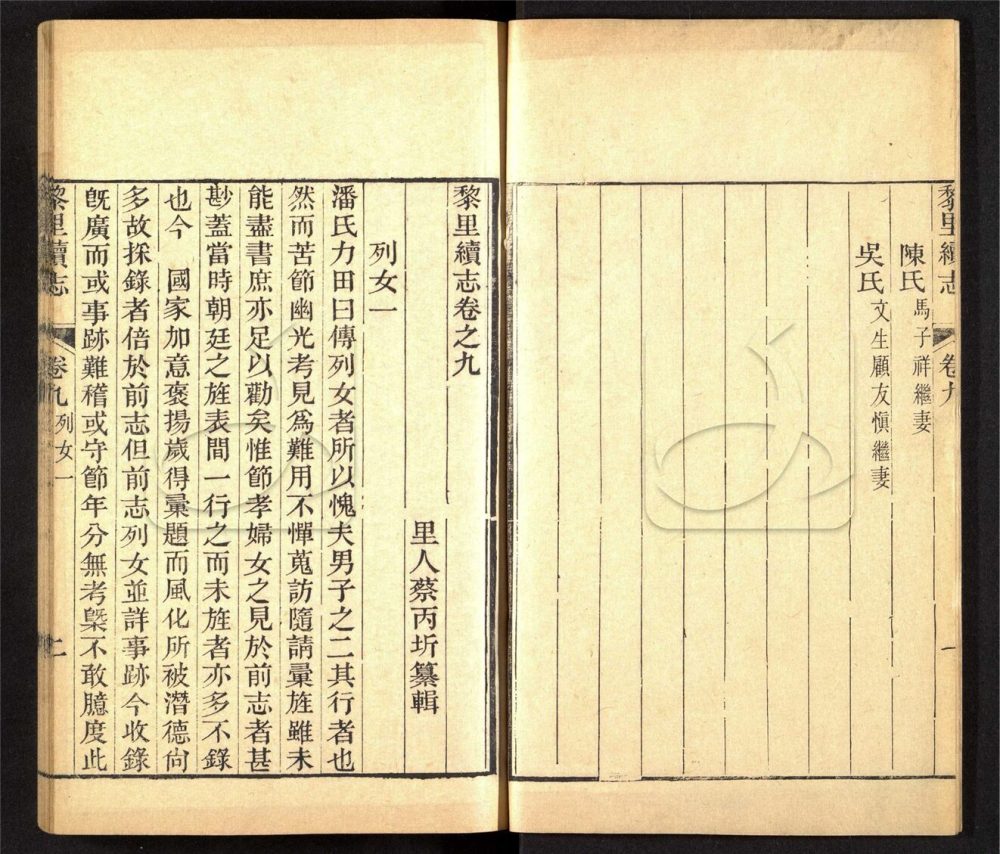 黎里續志 卷九 一
陳氏馬子祥繼妻
吳氏文生顧友愼繼妻
黎里續志卷之九
里人蔡丙圻纂輯
列女一
潘氏力田曰傳列女者所以愧夫男子之二其行者也
然而苦節幽光考見爲難用不憚蒐訪隨請彙旌雖未
能盡書庶亦足以勸矣惟節孝婦女之見於前志者甚
尠蓋當時朝廷之旌表間一行之而未旌者亦多不錄
也今 國家加意褒揚歲得彙題而風化所被潛德向
多故採錄者倍於前志但前志列女並詳事跡今收錄
旣廣而或事跡難稽或守節年分無考槩不敢臆度此
黎里續志 卷九 列女一 二